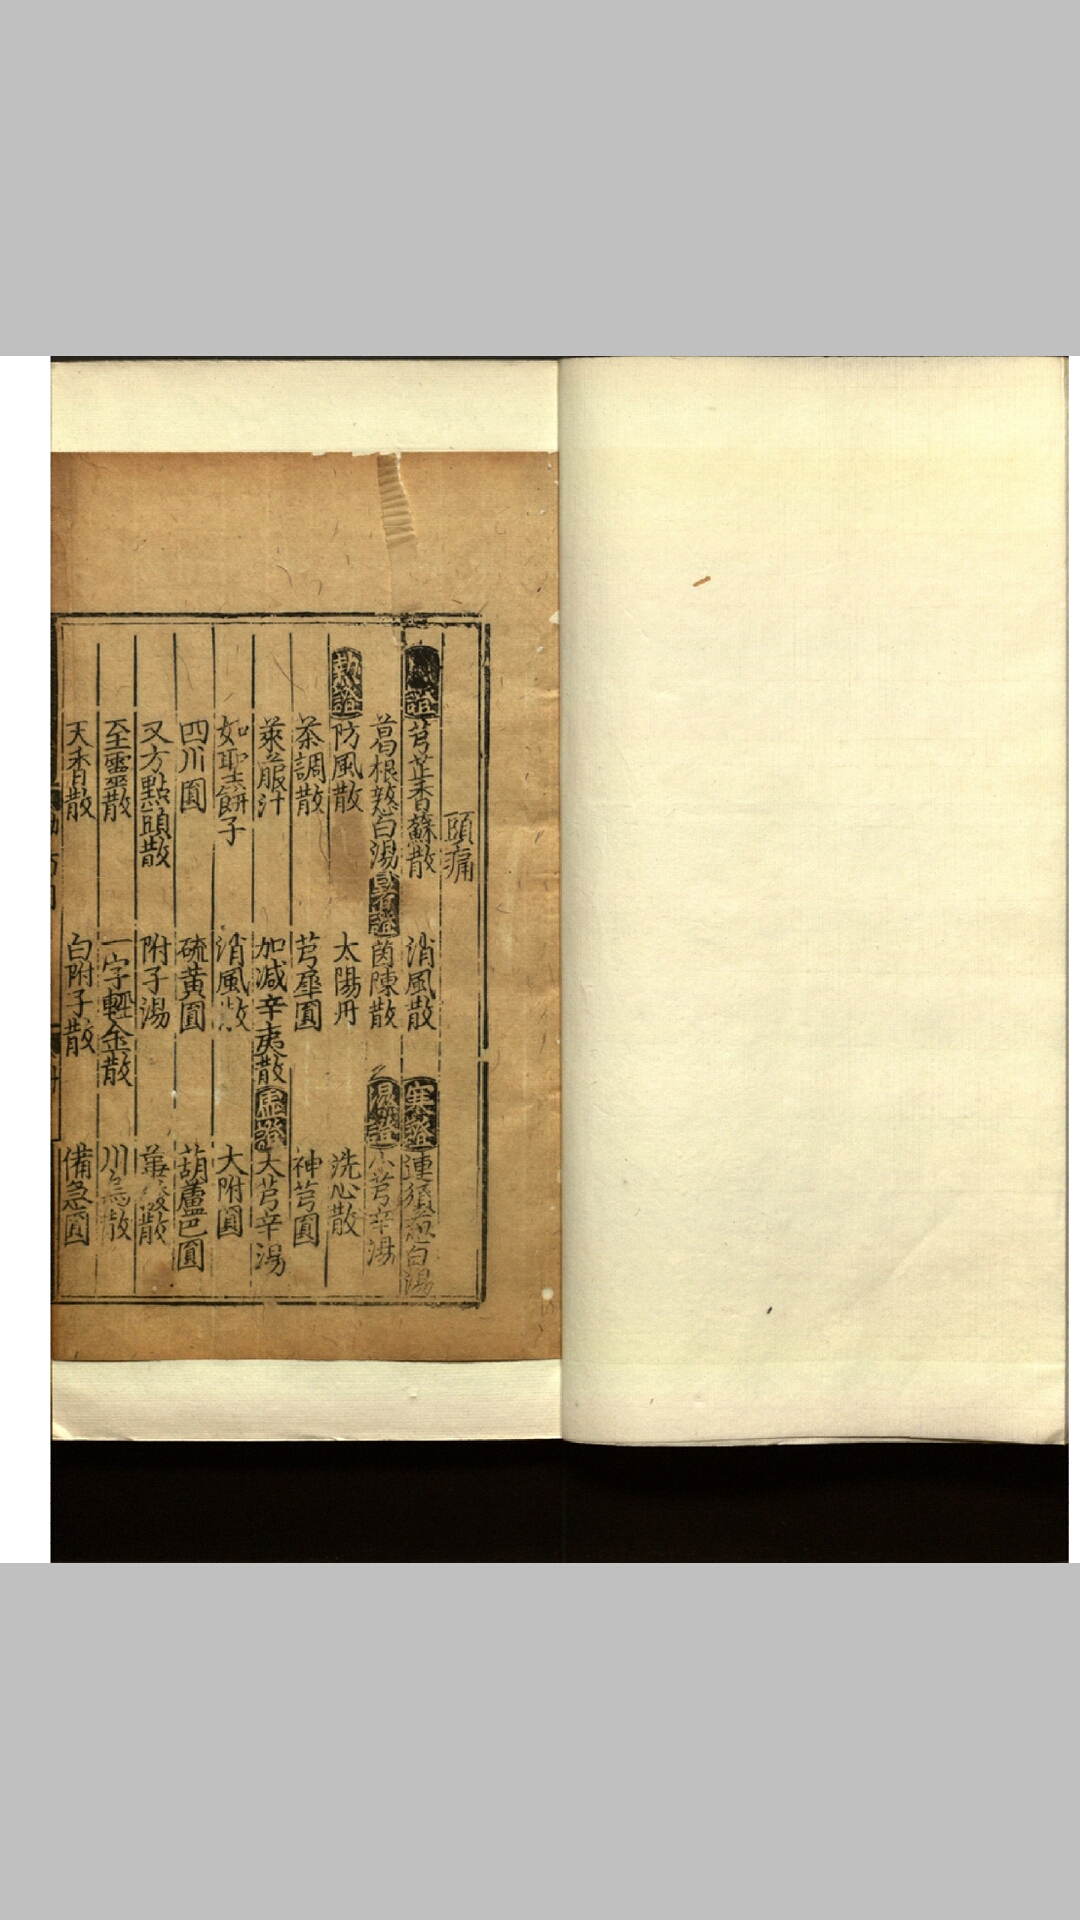 頭痛
證 芎芷香蘇散 消風散 寒證 連鬚葱白湯
葛根葱白湯 暑證 茵陳散 濕證 小芎辛湯
熱證 防風散 太陽丹 洗心散
茶調散 芎犀圓 神芎圓
萊菔汁 加減辛夷散 虛證 大芎辛湯
如聖餅子 消風散 大附圓
四川圓 硫黃圓 葫蘆巴圓
又方點頭散 附子湯 散
至靈散 一字輕金散 川烏散
天香散 白附子散 備急圓